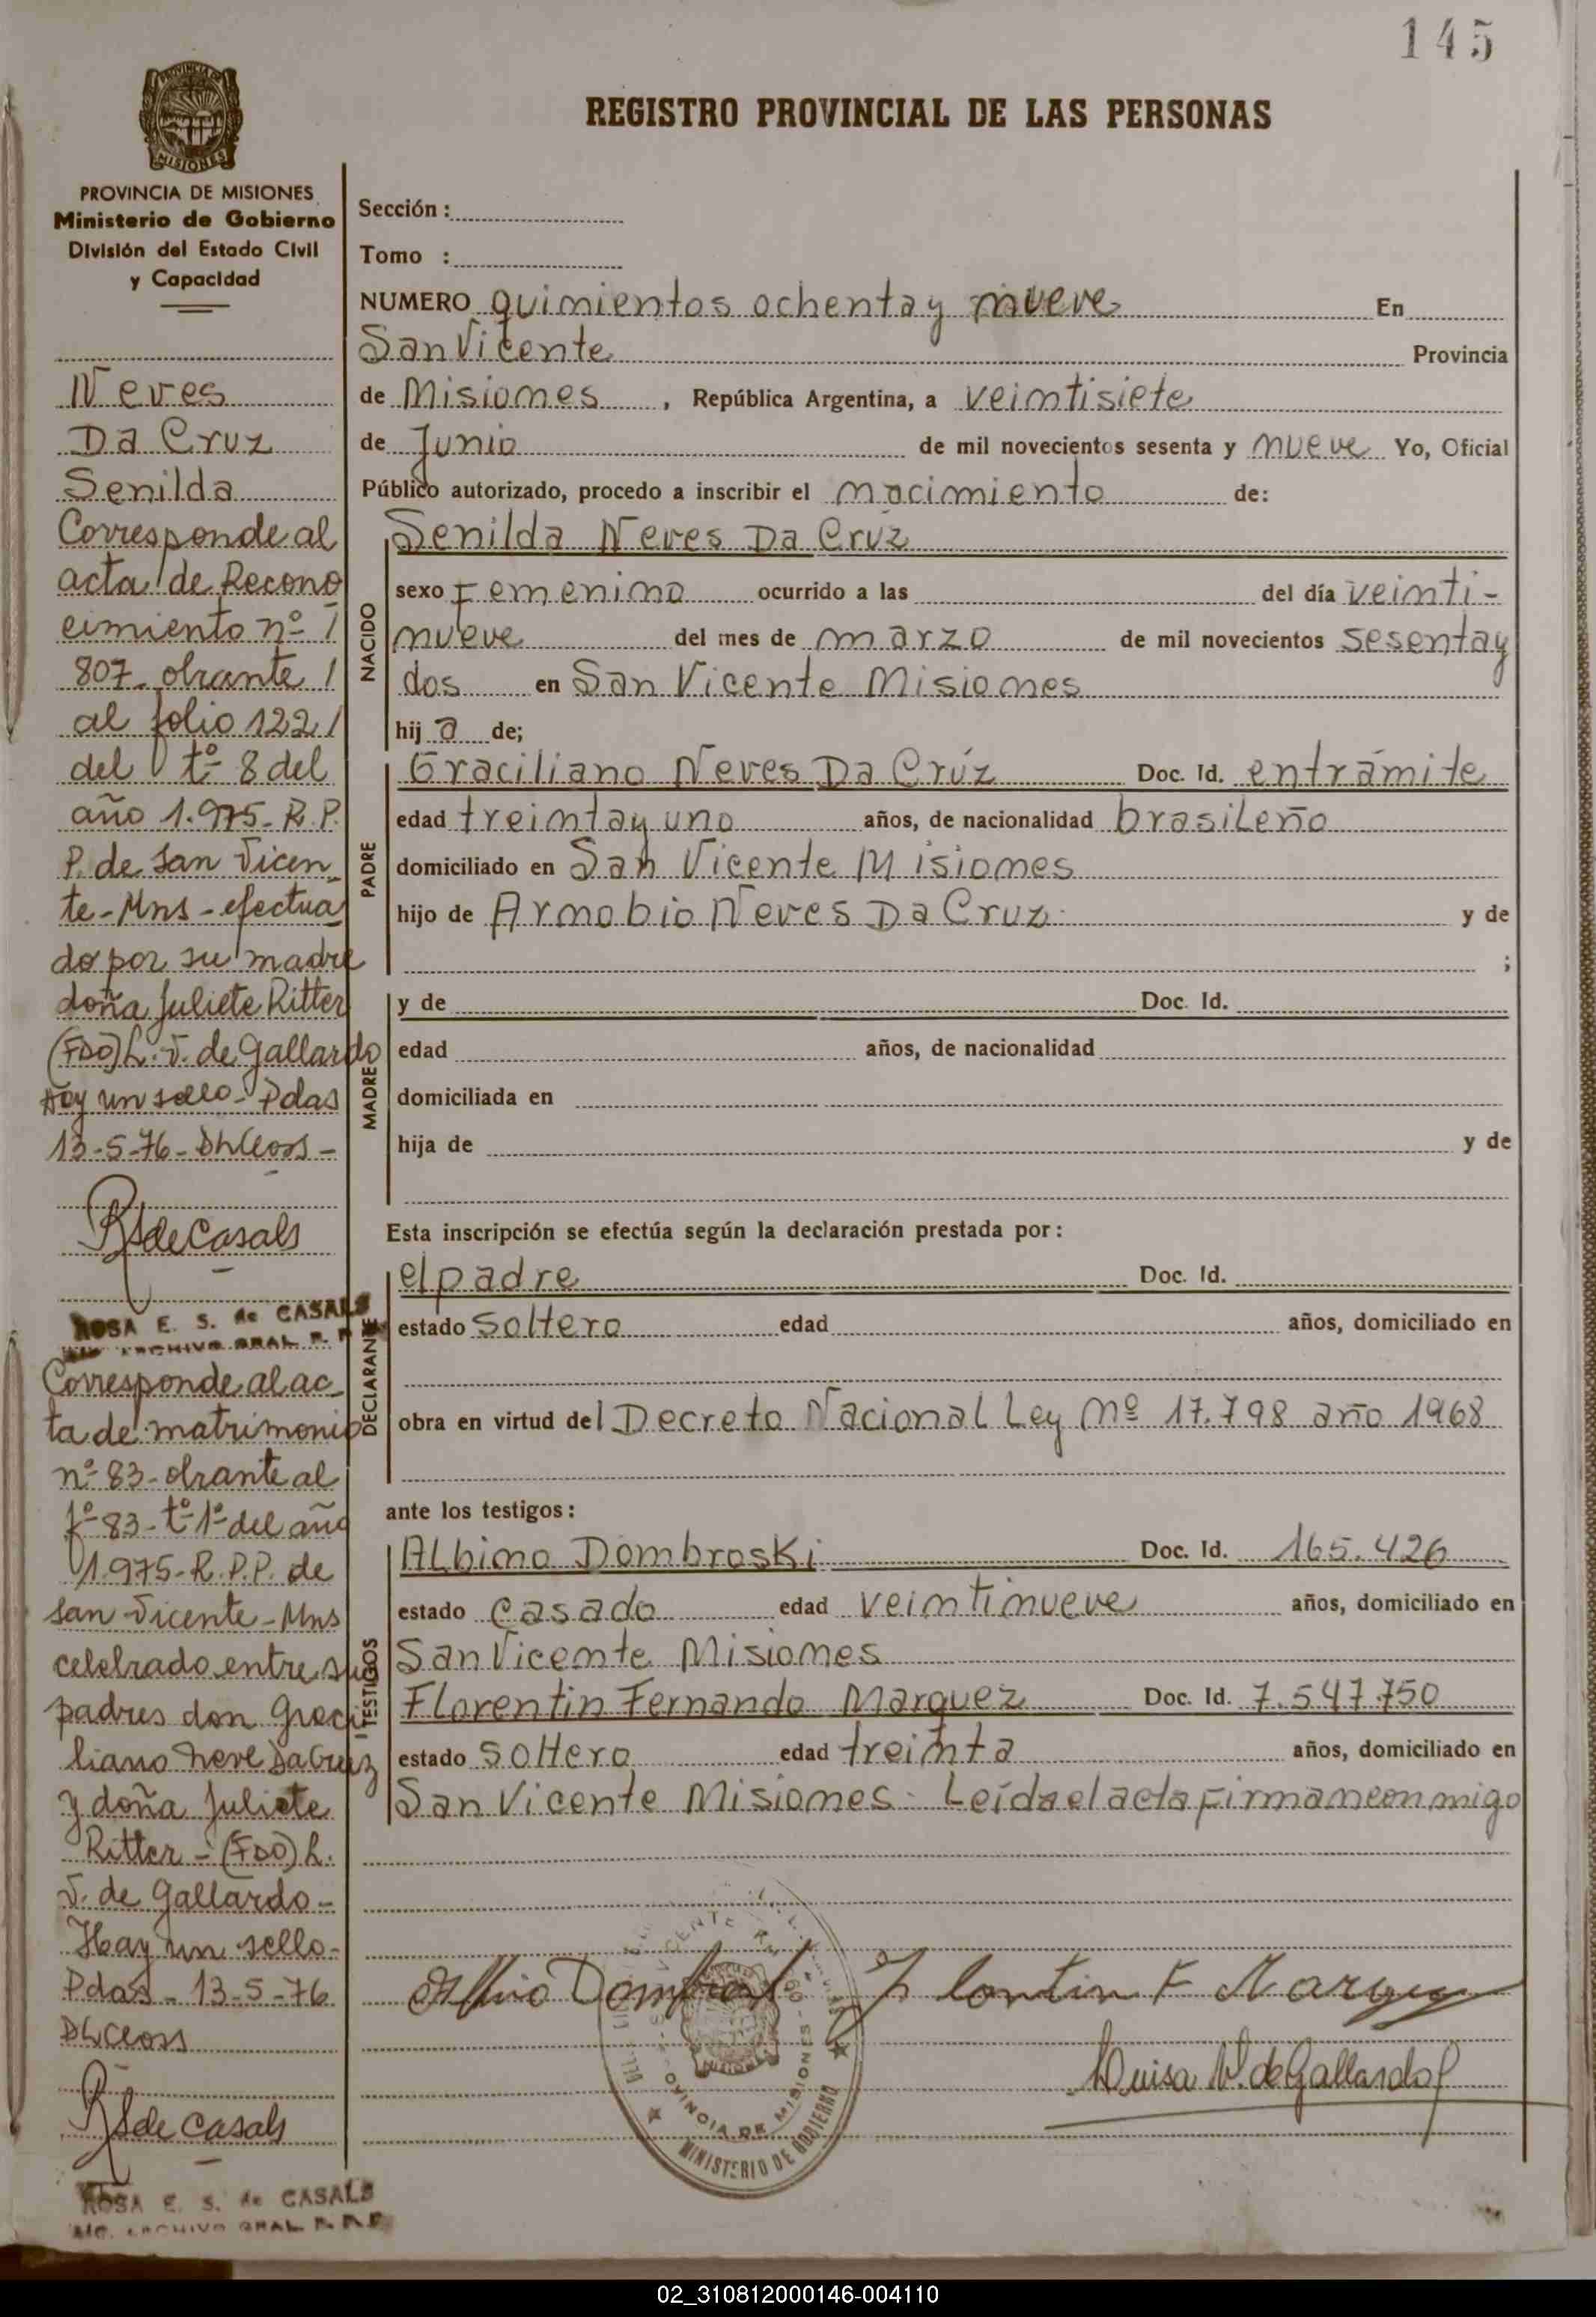 145
REGISTRO PROVINCIAL DE LAS PERSONAS
PROVINCIA DE MISIONES
PROVINCIA DE MISIONES
Ministerio de Gobierno
División del Estado Civil
y Capacidad
Neves
Da Cruz
Senilda
Corresponde al
acta de Recono
cimiento nº /
807- obrante /
al folio 122/
del tº 8 del
año 1.975- R.P.
P. de San Vicen-
te- Mns - efectua
do por su madre
doña Juliete Ritter
(FDO) L. V. de Gallardo
Hay un sello- Pdas
13-5-76- DhCloss-
RSdeCasals
ROSA E. S. de CASALS
ARCHIVO GRAL. R. P.
Corresponde al ac-
ta de matrimonio
nº 83- obrante al
fº 83- tº 1º del año
1.975- R.P.P. de
San Vicente- Mns
celebrado entre sus
padres don Graci
liano Neve Da Cruz
y doña Juliete
Ritter - (FDO) L.
V. de Gallardo -
Hay un sello-
Pdas - 13-5-76
DhCloss
RSde Casals
ROSA E. S. de CASALS
ARCHIVO GRAL. R. P. P.
Sección :
Tomo :
NUMERO quimientos ochenta y nueve En
San Vicente Provincia
de Misiones , República Argentina, a veintisiete
de Junio de mil novecientos sesenta y nueve Yo, Oficial
Público autorizado, procedo a inscribir el nacimiento de:
NACIDO
Senilda Neves Da Cruz
sexo Femenino ocurrido a las del día veinti-
nueve del mes de marzo de mil novecientos sesenta y
dos en San Vicente Misiones
hij a de;
PADRE
Graciliano Neves Da Crúz Doc. Id. en trámite
edad treinta y uno años, de nacionalidad brasileño
domiciliado en San Vicente Misiones
hijo de Arnobio Neves Da Cruz y de
;
MADRE
y de Doc. Id.
edad años, de nacionalidad
domiciliada en
hija de y de
Esta inscripción se efectúa según la declaración prestada por :
DECLARANTE
el padre Doc. Id.
estado soltero edad años, domiciliado en
obra en virtud del Decreto Nacional Ley Nº 17.798 año 1968
ante los testigos :
TESTIGOS
Albino Dombroski Doc. Id. 165.426
estado casado edad veintinueve años, domiciliado en
San Vicente Misiones
Florentin Fernando Marquez Doc. Id. 7.547.750
estado soltero edad treinta años, domiciliado en
San Vicente Misiones. Leída el acta firman conmigo
Albino Dombroski Florentin F Marquez
Luisa V. de Gallardo
PROVINCIA DE MISIONES
MINISTERIO DE GOBIERNO
02_310812000146-004110